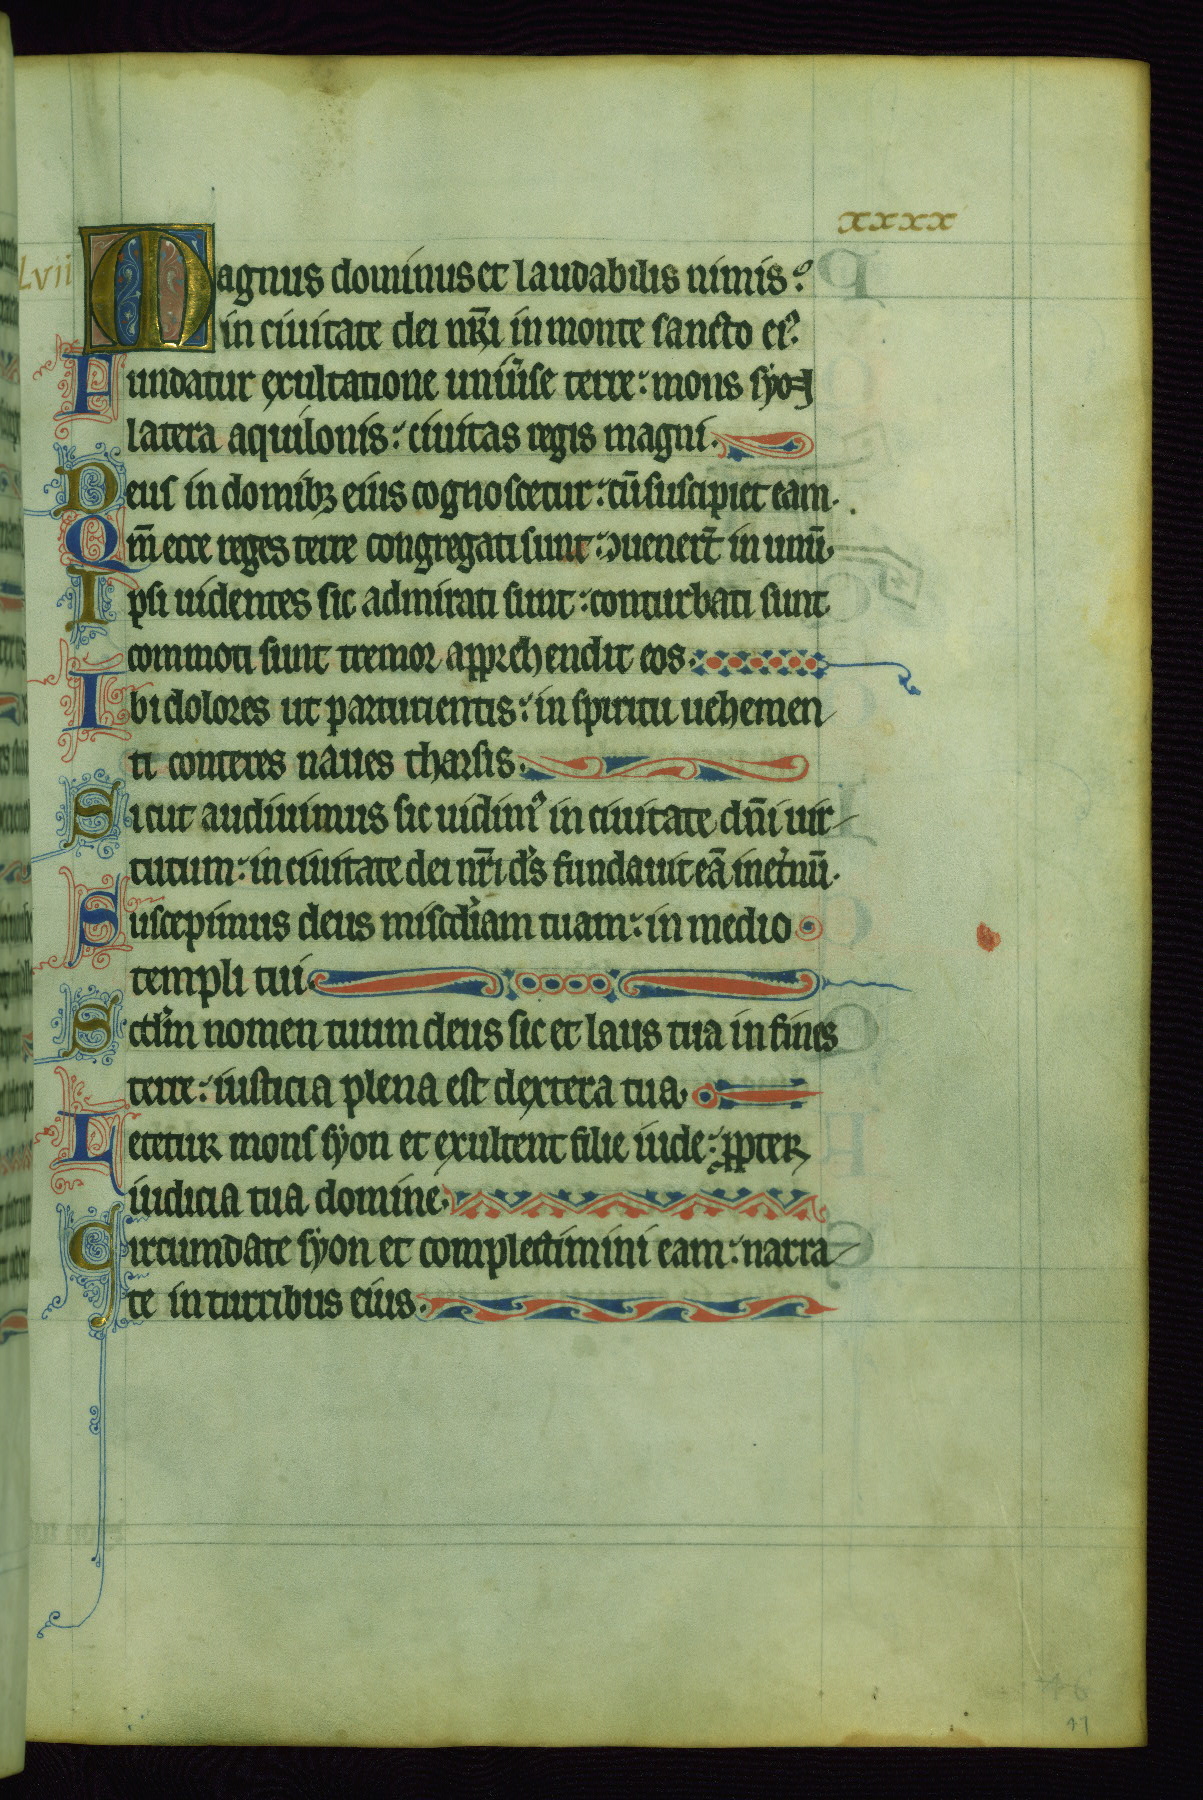 xxxx
Lvii
Magnus dominus et laudabilis nimis:
in ciuitate dei nr̄i in monte sancto eiꝰ
Fundatur exultatione uniūse terre: mons syon
latera aquilonis: ciuitas regis magni.
Deus in domibꝫ eius cognoscetur: cū suscipiet eam.
Qm̄ ecce reges terre congregati sunt: ɔuenert̄ in unū
Ipsi uidentes sic admirati sunt: conturbati sunt
commoti sunt tremor apprehendit eos.
Ibi dolores ut parturientis: in spiritu uehemen
ti conteres naues tharsis.
Sicut audiuimus sic uidimꝰ in ciuitate dn̄i uir
tutum: in ciuitate dei nr̄i ds̄ fundauit eā inet̄nū.
Suscepimus deus misc̄diam tuam: in medio
templi tui.
Scd̄m nomen tuum deus sic et laus tua in fines
terre: iusticia plena est dextera tua.
Letetur mons syon et exultent filie iude: ꝓpter
iudicia tua domine.
Circumdate syon et complectimini eam: narra
te in turribus eius.
46
47